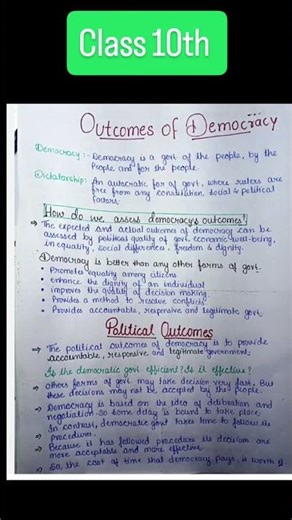 Class 10th
Outcomes of Democracy
Democracy :- Democracy is a govt of the people, by the
People and for the people.
Dictatorship: An autocratic for of govt, where rulers are
free from any constitution, social & political
factors.
How do we assess democracy's outcomes?
⇒ The expected and actual outcomes of democracy can be
assessed by political quality of govt, economic well-being,
in equality, social differences, freedom & dignity.
Democracy is better than any other forms of govt.
• Promotes equality among citizens
• enhance the dignity of an individual
• improves the quality of decision making
• Provides a method to resolve conflicts
• Provides accountable, responsive and legitimate govt.
Political Outcomes
⇒ The political outcomes of democracy is to provide
accountable, responsive and legitimate government.
Is the democratic govt efficient? Is it effective?
⇒ Others forms of govt may take decision very fast. But
these decisions may not be accepted by the people.
⇒ Democracy is based on the idea of deliberation and
negotiation so some delay is bound to take place.
In contrast, democratic govt takes time to follow its
procedure.
⇒ Because it has followed procedure its decision are
more acceptable and more effective.
⇒ So, the cost of time that democracy pays, is worth it.